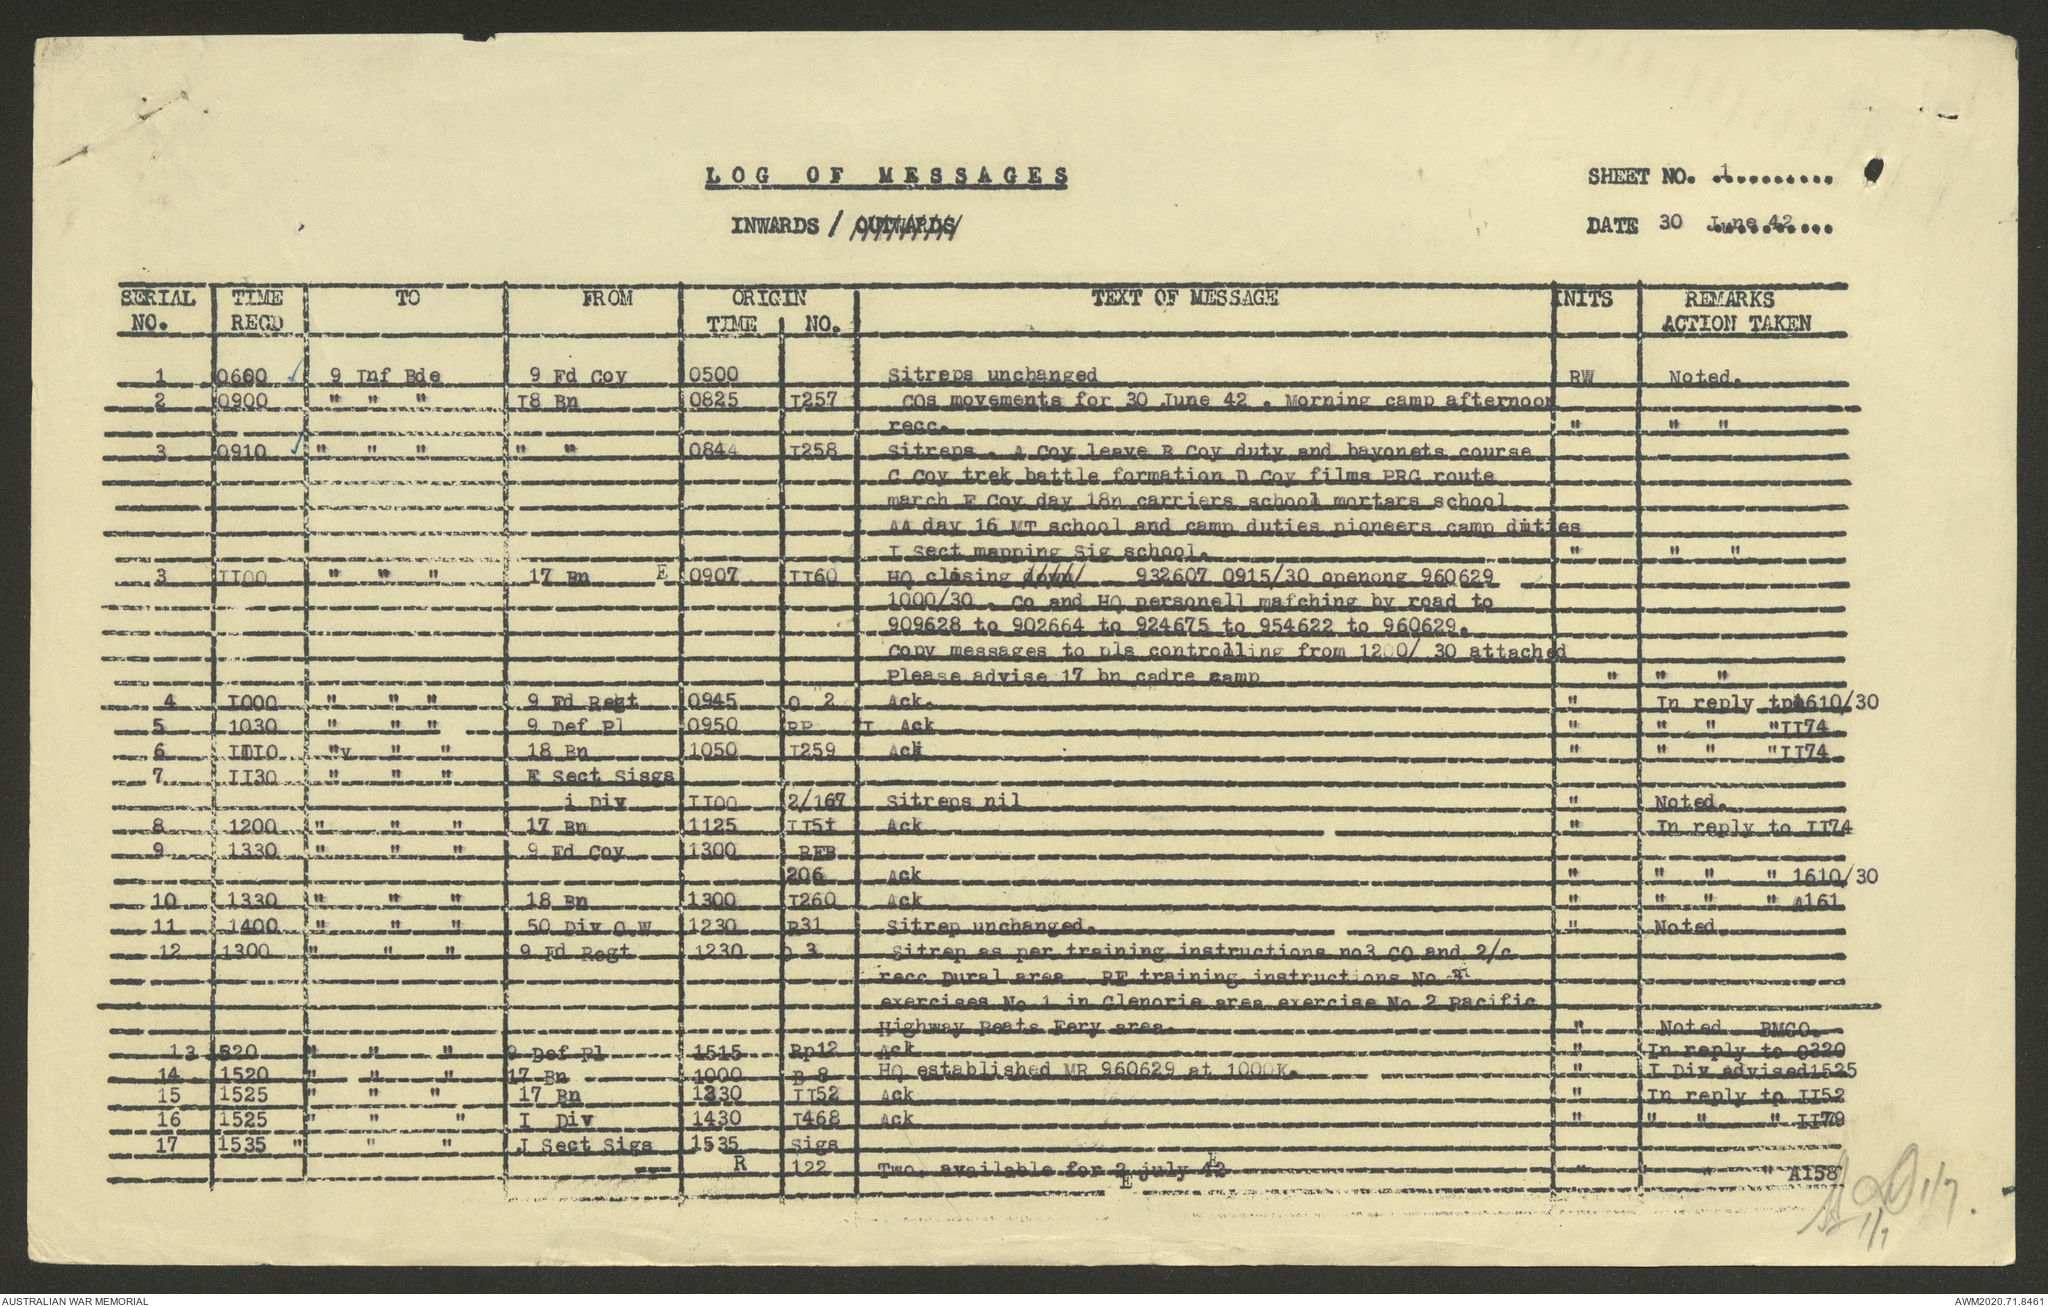 LOG OF MESSAGES
INWARDS / OUTWARDS
SHEET NO. 1
DATE 30 June 42
SERIAL NO. TIME RECD TO FROM ORIGIN TIME NO. TEXT OF MESSAGE INITS REMARKS ACTION TAKEN
1 0600 9 Inf Bde 9 Fd Coy 0500 Sitreps unchanged RW Noted.
2 0900 " " " I8 Bn 0825 I257 COs movements for 30 June 42 . Morning camp afternoon
recc. " " "
3 0910 " " " " " 0844 I258 Sitreps . A Coy leave B Coy duty and bayonets course
C Coy trek battle formation D Coy films PRG route
march E Coy day 18n carriers school mortars school
AA day 16 MT school and camp duties pioneers camp duties
I Sect mapping Sig school. " " "
3 II00 " " " 17 Bn E 0907 II60 HQ closing down 932607 0915/30 openong 960629
1000/30 . Co and HQ personell mafching by road to
909628 to 902664 to 924675 to 954622 to 960629.
Copy messages to pls controlling from 1200/ 30 attached
Please advise 17 bn cadre camp " " "
4 I000 " " " 9 Fd Regt 0945 O 2 Ack. " In reply to 1610/30
5 1030 " " " 9 Def Pl 0950 RP I Ack " " " "II74
6 I010 "v " " 18 Bn 1050 I259 Ack " " " "II74
7 II30 " " " E Sect Sisgs
i Div II00 2/167 Sitreps nil " Noted.
8 1200 " " " 17 Bn 1125 II51 Ack " In reply to II74
9 1330 " " " 9 Fd Coy 1300 RFB
206 Ack " " " " 1610/30
10 1330 " " " 18 Bn 1300 I260 Ack " " " " A161
11 1400 " " " 50 Div O.W. 1230 R31 Sitrep unchanged. " Noted.
12 1300 " " " 9 Fd Regt 1230 O 3 Sitrep as per training instructions no3 CO and 2/c
recc Dural area RF training instructions No 4
exercises No 1 in Glenorie area exercise No 2 Pacific
Highway Peats Fery area. " Noted BMGO.
13 1520 " " " 9 Def Pl 1515 Rp12 Ack " In reply to O320
14 1520 " " " 17 Bn 1000 B 8 HQ established MR 960629 at 1000K. " I Div advised1525
15 1525 " " " 17 Bn 1230 II52 Ack " In reply to II52
16 1525 " " " I Div 1430 I468 Ack " " " " II79
17 1535 " " " J Sect Sigs 1535 Sigs
R 122 Two. available for 2 july 42 " " " A158
1/7
1/7
AUSTRALIAN WAR MEMORIAL
AWM2020.71.8461